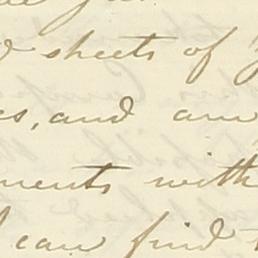 sheets of
es, and am
ments with
I can find t